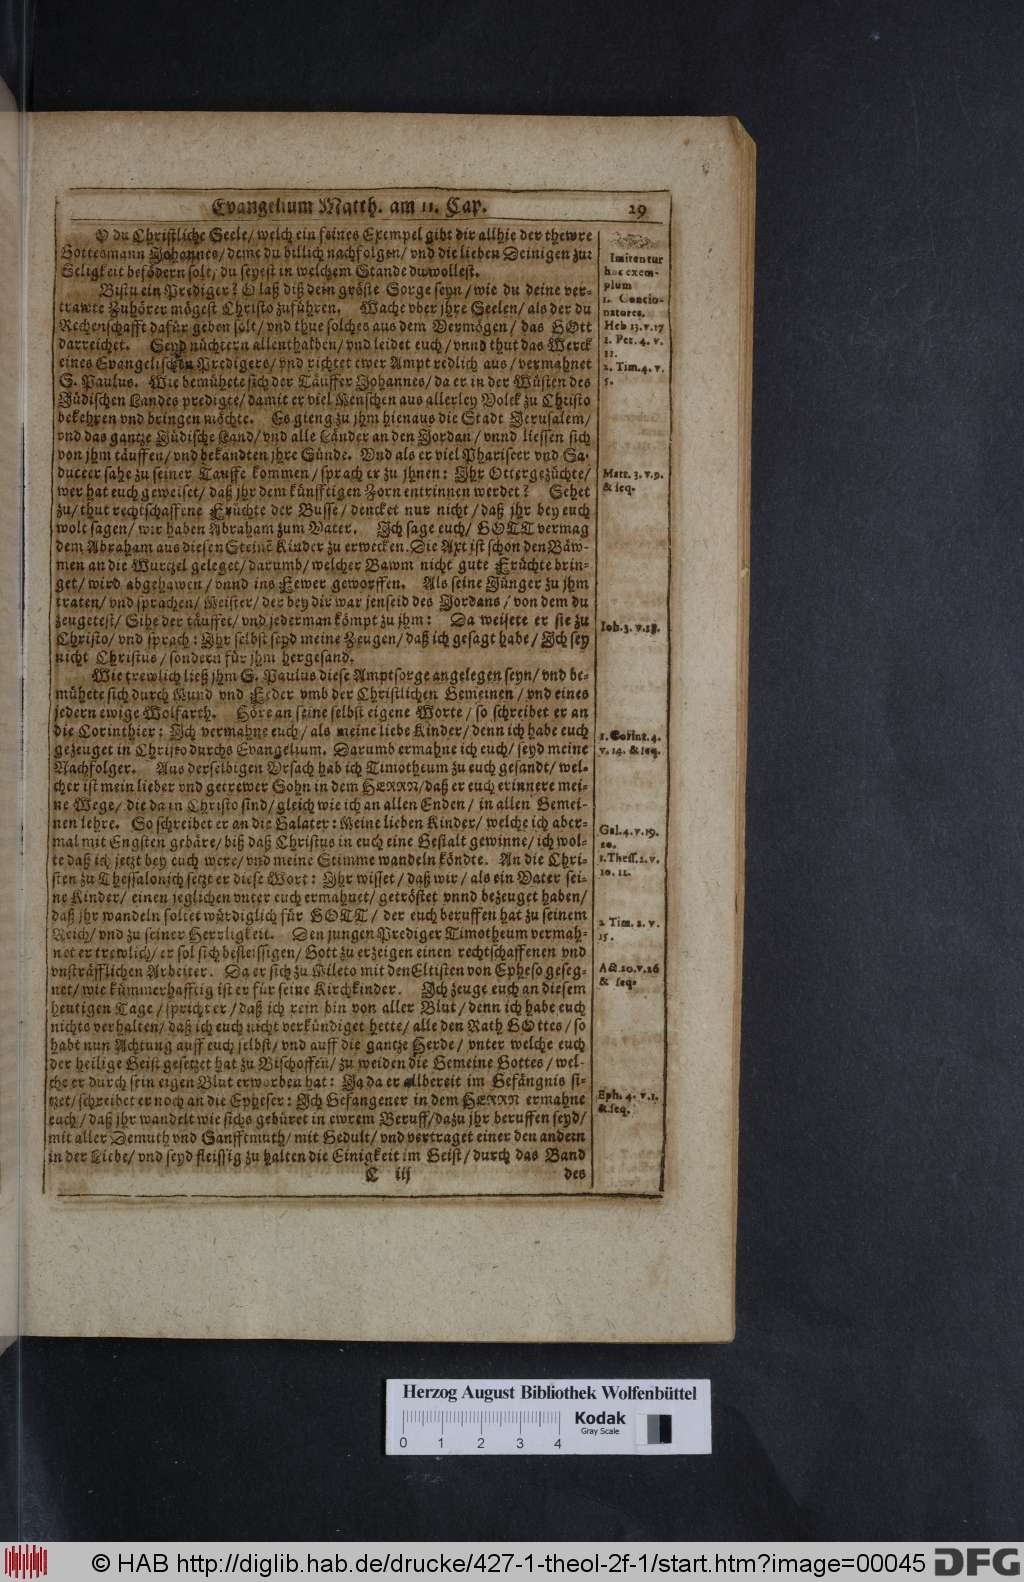 Evangelium Matth. am 11. Cap. 29
O du Christliche Seele/ welch ein feines Exempel gibt dir allhie der thewre
Gottesmann Johannes/ deme du billich nachfolgen/ vnd die lieben Deinigen zur
Seligkeit befödern solt/ du seyest in welchem Stande du wollest.
Bistu ein Prediger? O laß diß dein gröste Sorge seyn/ wie du deine ver-
trawte Zuhörer mögest Christo zuführen. Wache vber jhre Seelen/ als der du
Rechenschafft dafür geben solt/ vnd thue solches aus dem Vermögen/ das GOtt
darreichet. Seyd nüchtern allenthalben/ vnd leidet euch/ vnnd thut das Werck
eines Evangelischen Predigers/ vnd richtet ewer Ampt redlich aus/ vermahnet
S. Paulus. Wie bemühete sich der Täuffer Johannes/ da er in der Wüsten des
Jüdischen Landes predigte/ damit er viel Menschen aus allerley Volck zu Christo
bekehren vnd bringen möchte. Es gieng zu jhm hienaus die Stadt Jerusalem/
vnd das gantze Jüdische Land/ vnd alle Länder an den Jordan/ vnnd liessen sich
von jhm täuffen/ vnd bekandten jhre Sünde. Vnd als er viel Phariseer vnd Sa-
duceer sahe zu seiner Tauffe kommen/ sprach er zu jhnen: Jhr Ottergezüchte/
wer hat euch geweiset/ daß jhr dem künfftigen Zorn entrinnen werdet? Sehet
zu/ thut rechtschaffene Früchte der Busse/ dencket nur nicht/ daß jhr bey euch
wolt sagen/ wir haben Abraham zum Vater. Jch sage euch/ GOTT vermag
dem Abraham aus diesen Steinē Kinder zu erwecken. Die Axt ist schon den Bäw-
men an die Wurtzel geleget/ darumb/ welcher Bawm nicht gute Früchte brin-
get/ wird abgehawen/ vnnd ins Fewer geworffen. Als seine Jünger zu jhm
traten/ vnd sprachen/ Meister/ der bey dir war jenseid des Jordans/ von dem du
zeugetest/ Sihe der täuffet/ vnd jederman kömpt zu jhm: Da weisete er sie zu
Christo/ vnd sprach: Jhr selbst seyd meine Zeugen/ daß ich gesagt habe/ Jch sey
nicht Christus/ sondern für jhm hergesand.
Wie trewlich ließ jhm S. Paulus diese Amptsorge angelegen seyn/ vnd be-
mühete sich durch Mund vnd Feder vmb der Christlichen Gemeinen/ vnd eines
jedern ewige Wolfarth. Höre an seine selbst eigene Worte/ so schreibet er an
die Corinthier: Jch vermahne euch/ als meine liebe Kinder/ denn ich habe euch
gezeuget in Christo durchs Evangelium. Darumb ermahne ich euch/ seyd meine
Nachfolger. Aus derselbigen Vrsach hab ich Timotheum zu euch gesandt/ wel-
cher ist mein lieber vnd getrewer Sohn in dem HERRN/ daß er euch erinnere mei-
ne Wege/ die da in Christo sind/ gleich wie ich an allen Enden/ in allen Gemei-
nen lehre. So schreibet er an die Galater: Meine lieben Kinder/ welche ich aber-
mal mit Engsten gebäre/ biß daß Christus in euch eine Gestalt gewinne/ ich wol-
te daß ich jetzt bey euch were/ vnd meine Stimme wandeln köndte. An die Chri-
sten zu Thessalonich setzt er diese Wort: Jhr wisset/ daß wir/ als ein Vater sei-
ne Kinder/ einen jeglichen vnter euch ermahnet/ getröstet vnnd bezeuget haben/
daß jhr wandeln soltet würdiglich für GOTT/ der euch beruffen hat zu seinem
Reich/ vnd zu seiner Herrligkeit. Den jungen Prediger Timotheum vermah-
net er trewlich/ er sol sich befleissigen/ Gott zu erzeigen einen rechtschaffenen vnd
vnsträfflichen Arbeiter. Da er sich zu Mileto mit den Eltisten von Epheso geseg-
net/ wie kümmerhafftig ist er für seine Kirchkinder. Jch zeuge euch an diesem
heutigen Tage/ spricht er/ daß ich rein bin von aller Blut/ denn ich habe euch
nichts verhalten/ daß ich euch nicht verkündiget hette/ alle den Rath GOttes/ so
habt nun Achtung auff euch selbst/ vnd auff die gantze Herde/ vnter welche euch
der heilige Geist gesetzet hat zu Bischoffen/ zu weiden die Gemeine Gottes/ wel-
che er durch sein eigen Blut erworben hat: Ja da er allbereit im Gefängnis si-
tzet/ schreibet er noch an die Epheser: Jch Gefangener in dem HERRN ermahne
euch/ daß jhr wandelt wie sichs gebüret in ewrem Beruff/ dazu jhr beruffen seyd/
mit aller Demuth vnd Sanfftmuth/ mit Gedult/ vnd vertraget einer den andern
in der Liebe/ vnd seyd fleissig zu halten die Einigkeit im Geist/ durch das Band
C iij des
Imitentur
hoc exem-
plum
1. Concio-
natores.
Heb 13. v. 17
1. Pet. 4. v.
11.
2. Tim. 4. v.
5.
Matt. 3. v. 9.
& seq.
Ioh. 3. v. 28.
1. Corint. 4.
v. 14. & seq.
Gal. 4. v. 19.
20.
1. Thess. 2. v.
10. 11.
2 Tim. 2. v.
15.
Act. 20. v. 26
& seq.
Eph. 4. v. 1.
& seq.
Herzog August Bibliothek Wolfenbüttel
Kodak
Gray Scale
0 1 2 3 4
© HAB http://diglib.hab.de/drucke/427-1-theol-2f-1/start.htm?image=00045 DFG